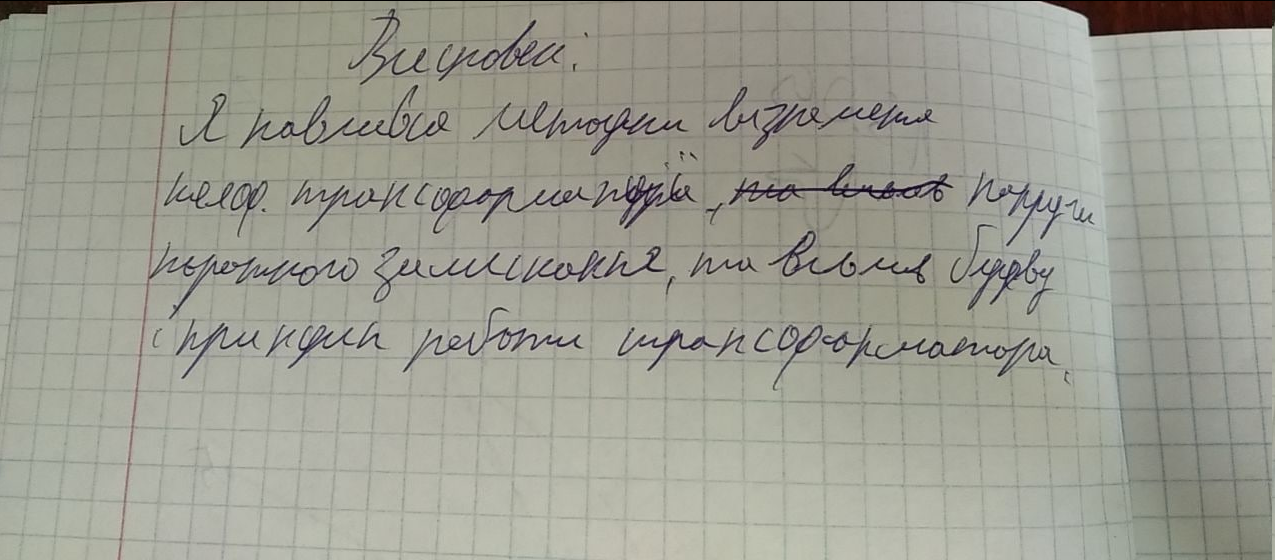 Висновок:
Я навчився методики визначення
коеф. трансформації, та вивчив напруги
короткого замикання, та вивчив будову
і принцип роботи трансформатора.